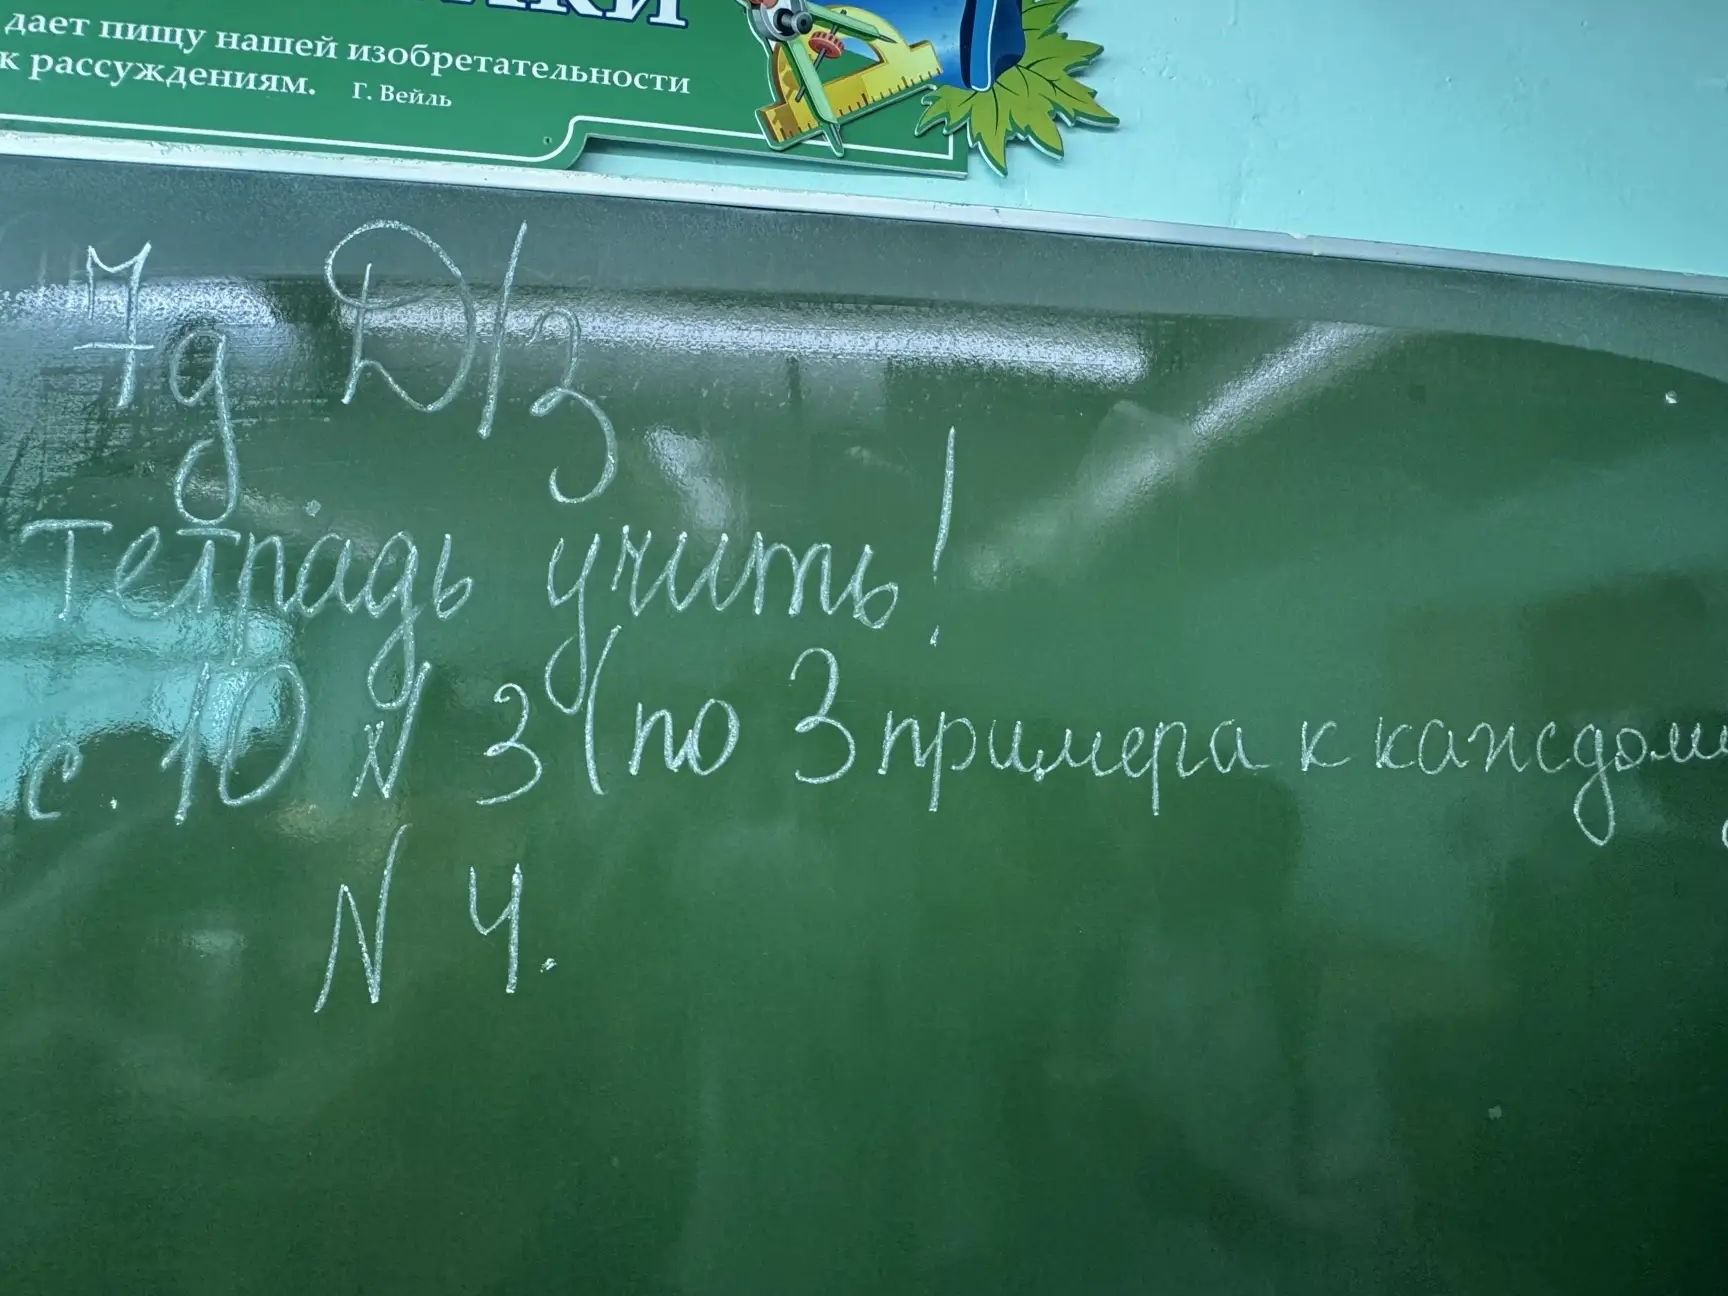 дает пищу нашей изобретательности
к рассуждениям. Г. Вейль
7д Д/з
тетрадь учить!
с. 10 N 3 (по 3 примера к каждому
N 4.